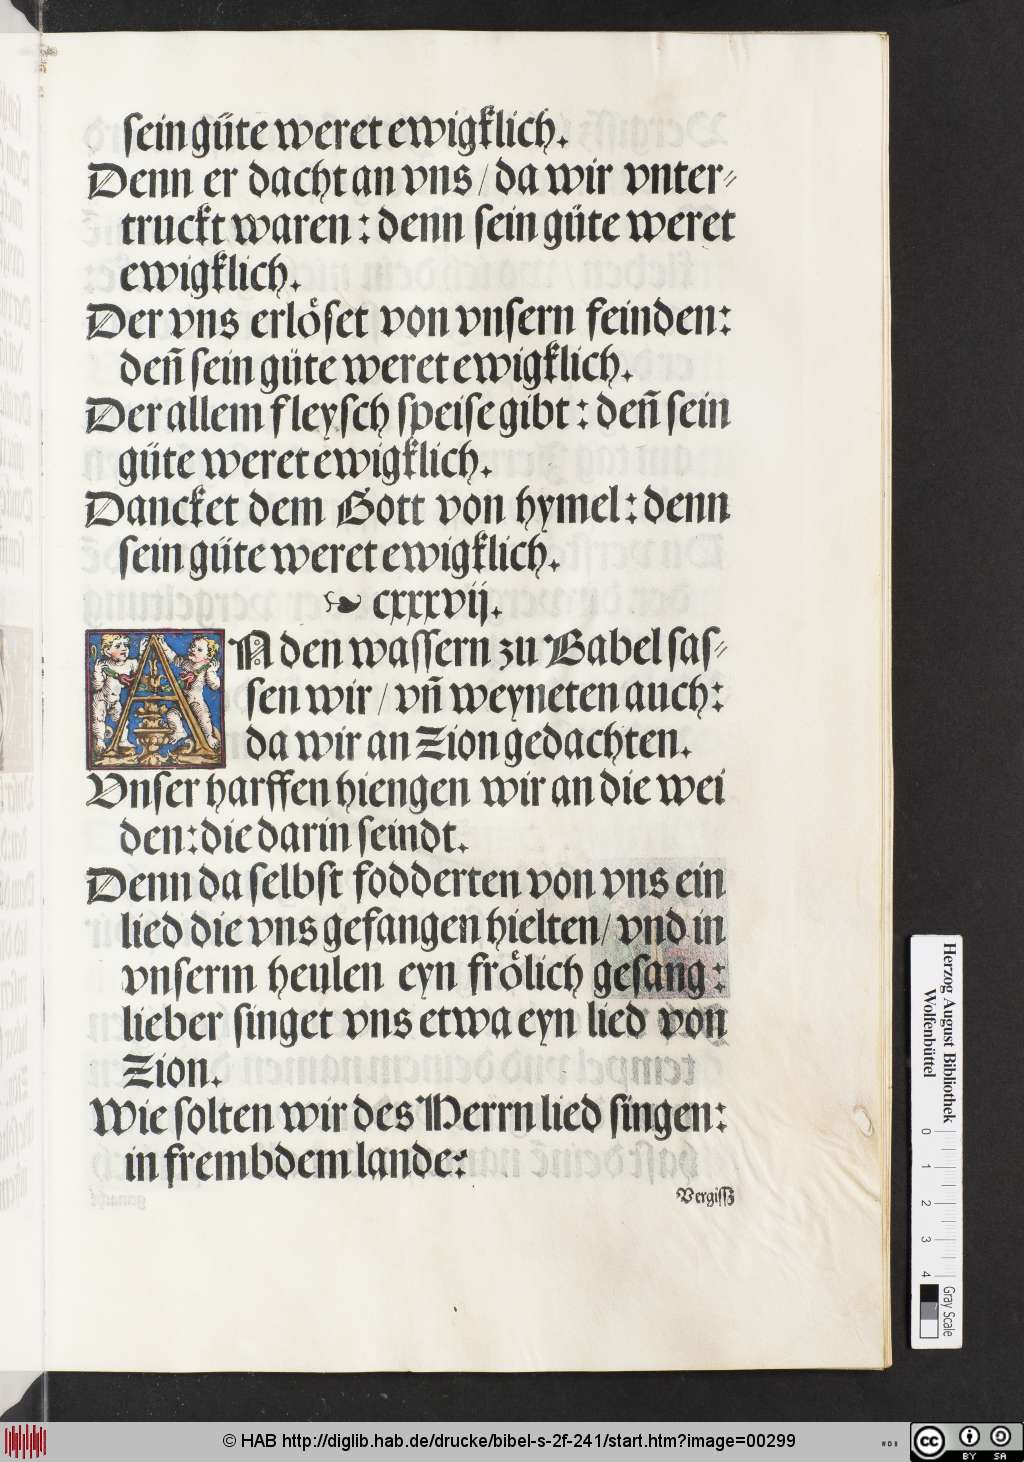 sein güte weret ewigklich.
Denn er dacht an vns / da wir vnter⸗
truckt waren : denn sein güte weret
ewigklich.
Der vns erlöset von vnsern feinden:
deñ sein güte weret ewigklich.
Der allem fleysch speise gibt : deñ sein
güte weret ewigklich.
Dancket dem Gott von hymel : denn
sein güte weret ewigklich.
☙ cxxxvij.
AN den wassern zu Babel sas⸗
sen wir / vñ weyneten auch:
da wir an Zion gedachten.
Vnser harffen hiengen wir an die wei
den: die darin seindt.
Denn da selbst fodderten von vns ein
lied die vns gefangen hielten / vnd in
vnserm heulen eyn frölich gesang:
lieber singet vns etwa eyn lied von
Zion.
Wie solten wir des Herrn lied singen:
in frembdem lande:
Vergissz
Herzog August Bibliothek
Wolfenbüttel
0 1 2 3 4
Gray Scale
© HAB http://diglib.hab.de/drucke/bibel-s-2f-241/start.htm?image=00299
WDB
cc BY SA